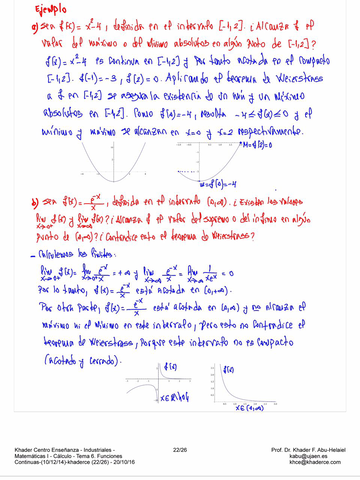 Ejemplo
a) Sea f(x)=x²-4, definida en el intervalo [-1,2]. ¿Alcanza f el
valor del máximo o del mínimo absolutos en algún punto de [-1,2]?
f(x)=x²-4 es continua en [-1,2] y por tanto acotada en el compacto
[-1,2]. f(-1)=-3, f(2)=0. Aplicando el teorema de Weierstrass
a f en [-1,2] se asegura la existencia de un mín y un máximo
absolutos en [-1,2]. Como f(0)=-4, resulta -4≤f(x)≤0 y el
mínimo y máximo se alcanzan en x=0 y x=2 respectivamente.
M=f(2)=0
m=f(0)=-4
b) Sea f(x)=e^-x/x, definida en el intervalo (0,∞). ¿Existen los valores
lím x→0+ f(x) y lím x→∞ f(x)? ¿Alcanza f el valor del supremo o del ínfimo en algún
punto de (0,∞)? ¿Contradice esto el teorema de Weierstrass?
- Calculemos los límites:
lím x→0+ f(x)= lím x→0+ e^-x/x = +∞ y lím x→∞ e^-x/x = lím x→∞ 1/xe^x = 0
Por lo tanto, f(x)=e^-x/x está acotada en (0,∞).
Por otra parte, f(x)=e^-x/x está acotada en (0,∞) y no alcanza el
máximo ni el mínimo en este intervalo, pero esto no contradice el
teorema de Weierstrass, porque este intervalo no es compacto
(acotado y cerrado).
f(x)
f(x)
x∈R\{0}
x∈(0,∞)
Khader Centro Enseñanza - Industriales -
Matemáticas I - Cálculo - Tema 6. Funciones
Continuas-(10/12/14)-khaderce (22/26) - 20/10/16
22/26
Prof. Dr. Khader F. Abu-Helaiel
kabu@ujaen.es
khce@khaderce.com